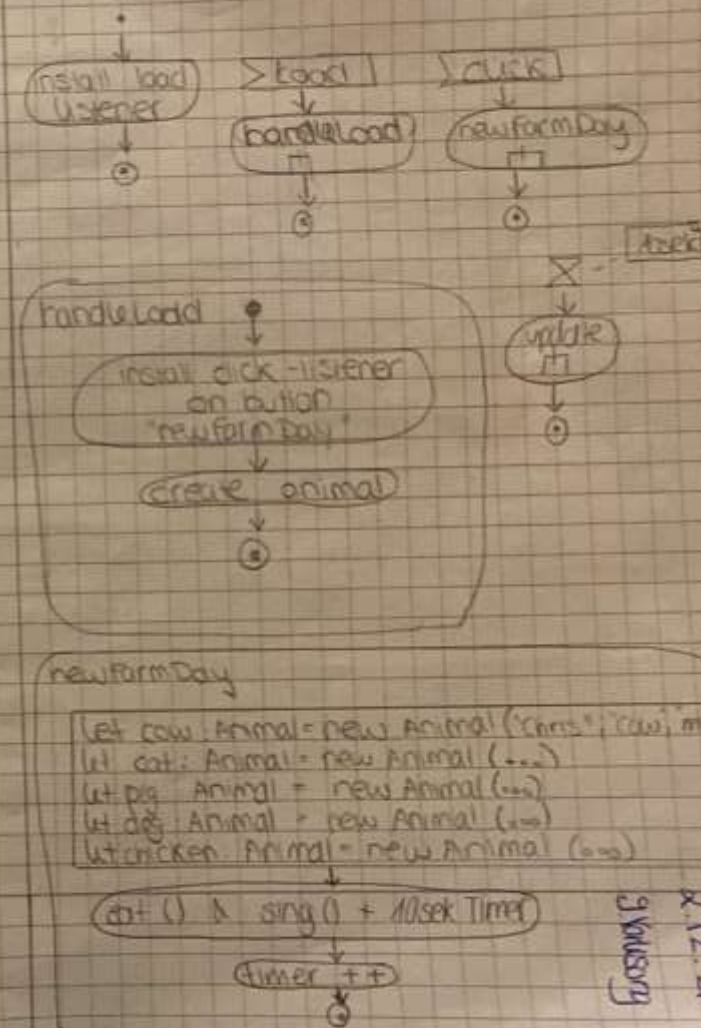 install load
listener
load
handleLoad
click
newFarmDay
update
handleLoad
install click-listener
on button
"newFarmDay"
create animal
newFarmDay
let cow: Animal = new Animal ("Chris", "cow",
let cat: Animal = new Animal (...)
let pig Animal = new Animal (...)
let dog: Animal = new Animal (...)
let chicken: Animal = new Animal (...)
eat () & sing () + 10sek Timer
timer ++